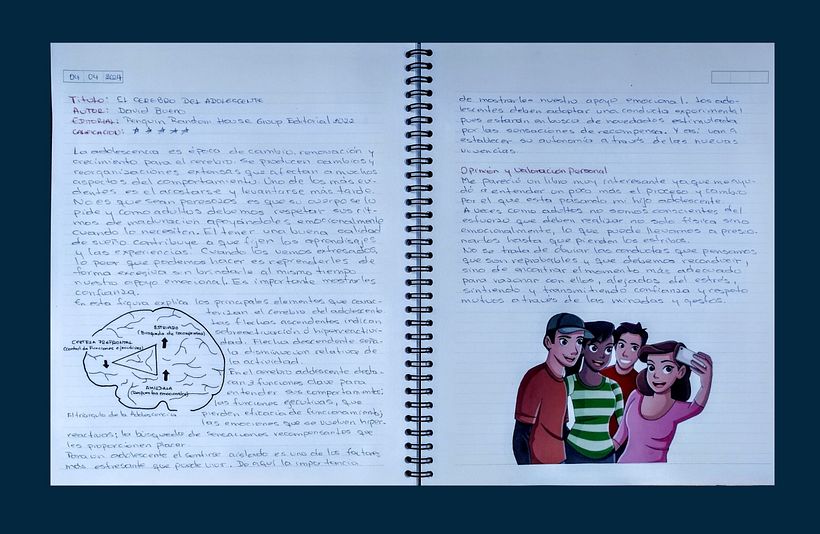 04 04 2024
TÍTULO: EL CEREBRO DEL ADOLESCENTE
AUTOR: David Bueno
EDITORIAL: Penguin Random House Group Editorial 2022
CALIFICACIÓN: ☆ ☆ ☆ ☆ ☆
La adolescencia es época de cambio, renovación y
crecimiento para el cerebro. Se producen cambios y
reorganizaciones extensas que afectan a muchos
aspectos del comportamiento. Uno de los más evi-
dentes es el acostarse y levantarse más tarde.
No es que sean perezosos es que su cuerpo se lo
pide y como adultos debemos respetar sus rit-
mos de maduración apoyándoles emocionalmente
cuando lo necesiten. El tener una buena calidad
de sueño contribuye a que fijen los aprendizajes
y las experiencias. Cuando los vemos estresados,
lo peor que podemos hacer es reprenderles de
forma excesiva sin brindarle al mismo tiempo
nuestro apoyo emocional. Es importante mostrarles
confianza.
En esta figura explica los principales elementos que carac-
terizan el cerebro del adolescente.
Las flechas ascendentes indican
sobreactivación o hiperreactivi-
dad. Flecha descendente seña-
la disminución relativa de
la actividad.
En el cerebro adolescente desta-
can 3 funciones clave para
entender sus comportamientos;
las funciones ejecutivas, que
pierden eficacia de funcionamiento;
las emociones que se vuelven hiper-
reactivas; la búsqueda de sensaciones recompensantes que
les proporcionen placer.
Para un adolescente el sentirse aislado es uno de los factores
más estresante que puede vivir. De aquí la importancia
ESTRIADO
(Búsqueda de recompensas)
CORTEZA PREFRONTAL
(Control de funciones ejecutivas)
AMÍGDALA
(Conjuntos emocionales)
El triángulo de la Adolescencia
de mostrarles nuestro apoyo emocional. Los ado-
lescentes deben adoptar una conducta experimental
pues estarán en busca de novedades estimulada
por las sensaciones de recompensa. Y así van a
establecer su autonomía a través de las nuevas
vivencias.
Opinión y Valoración Personal
Me pareció un libro muy interesante ya que me ayu-
dó a entender un poco más el proceso y cambio
por el que esta pasando mi hijo adolescente.
A veces como adultos no somos conscientes del
esfuerzo que deben realizar no solo física sino
emocionalmente, lo que puede llevarnos a presio-
narlos hasta que pierden los estribos.
No se trata de obviar las conductas que pensamos
que son reprobables y que debemos reconducir,
sino de encontrar el momento más adecuado
para razonar con ellos, alejados del estrés,
sintiendo y transmitiendo confianza y respeto
mutuos a través de las miradas y gestos.